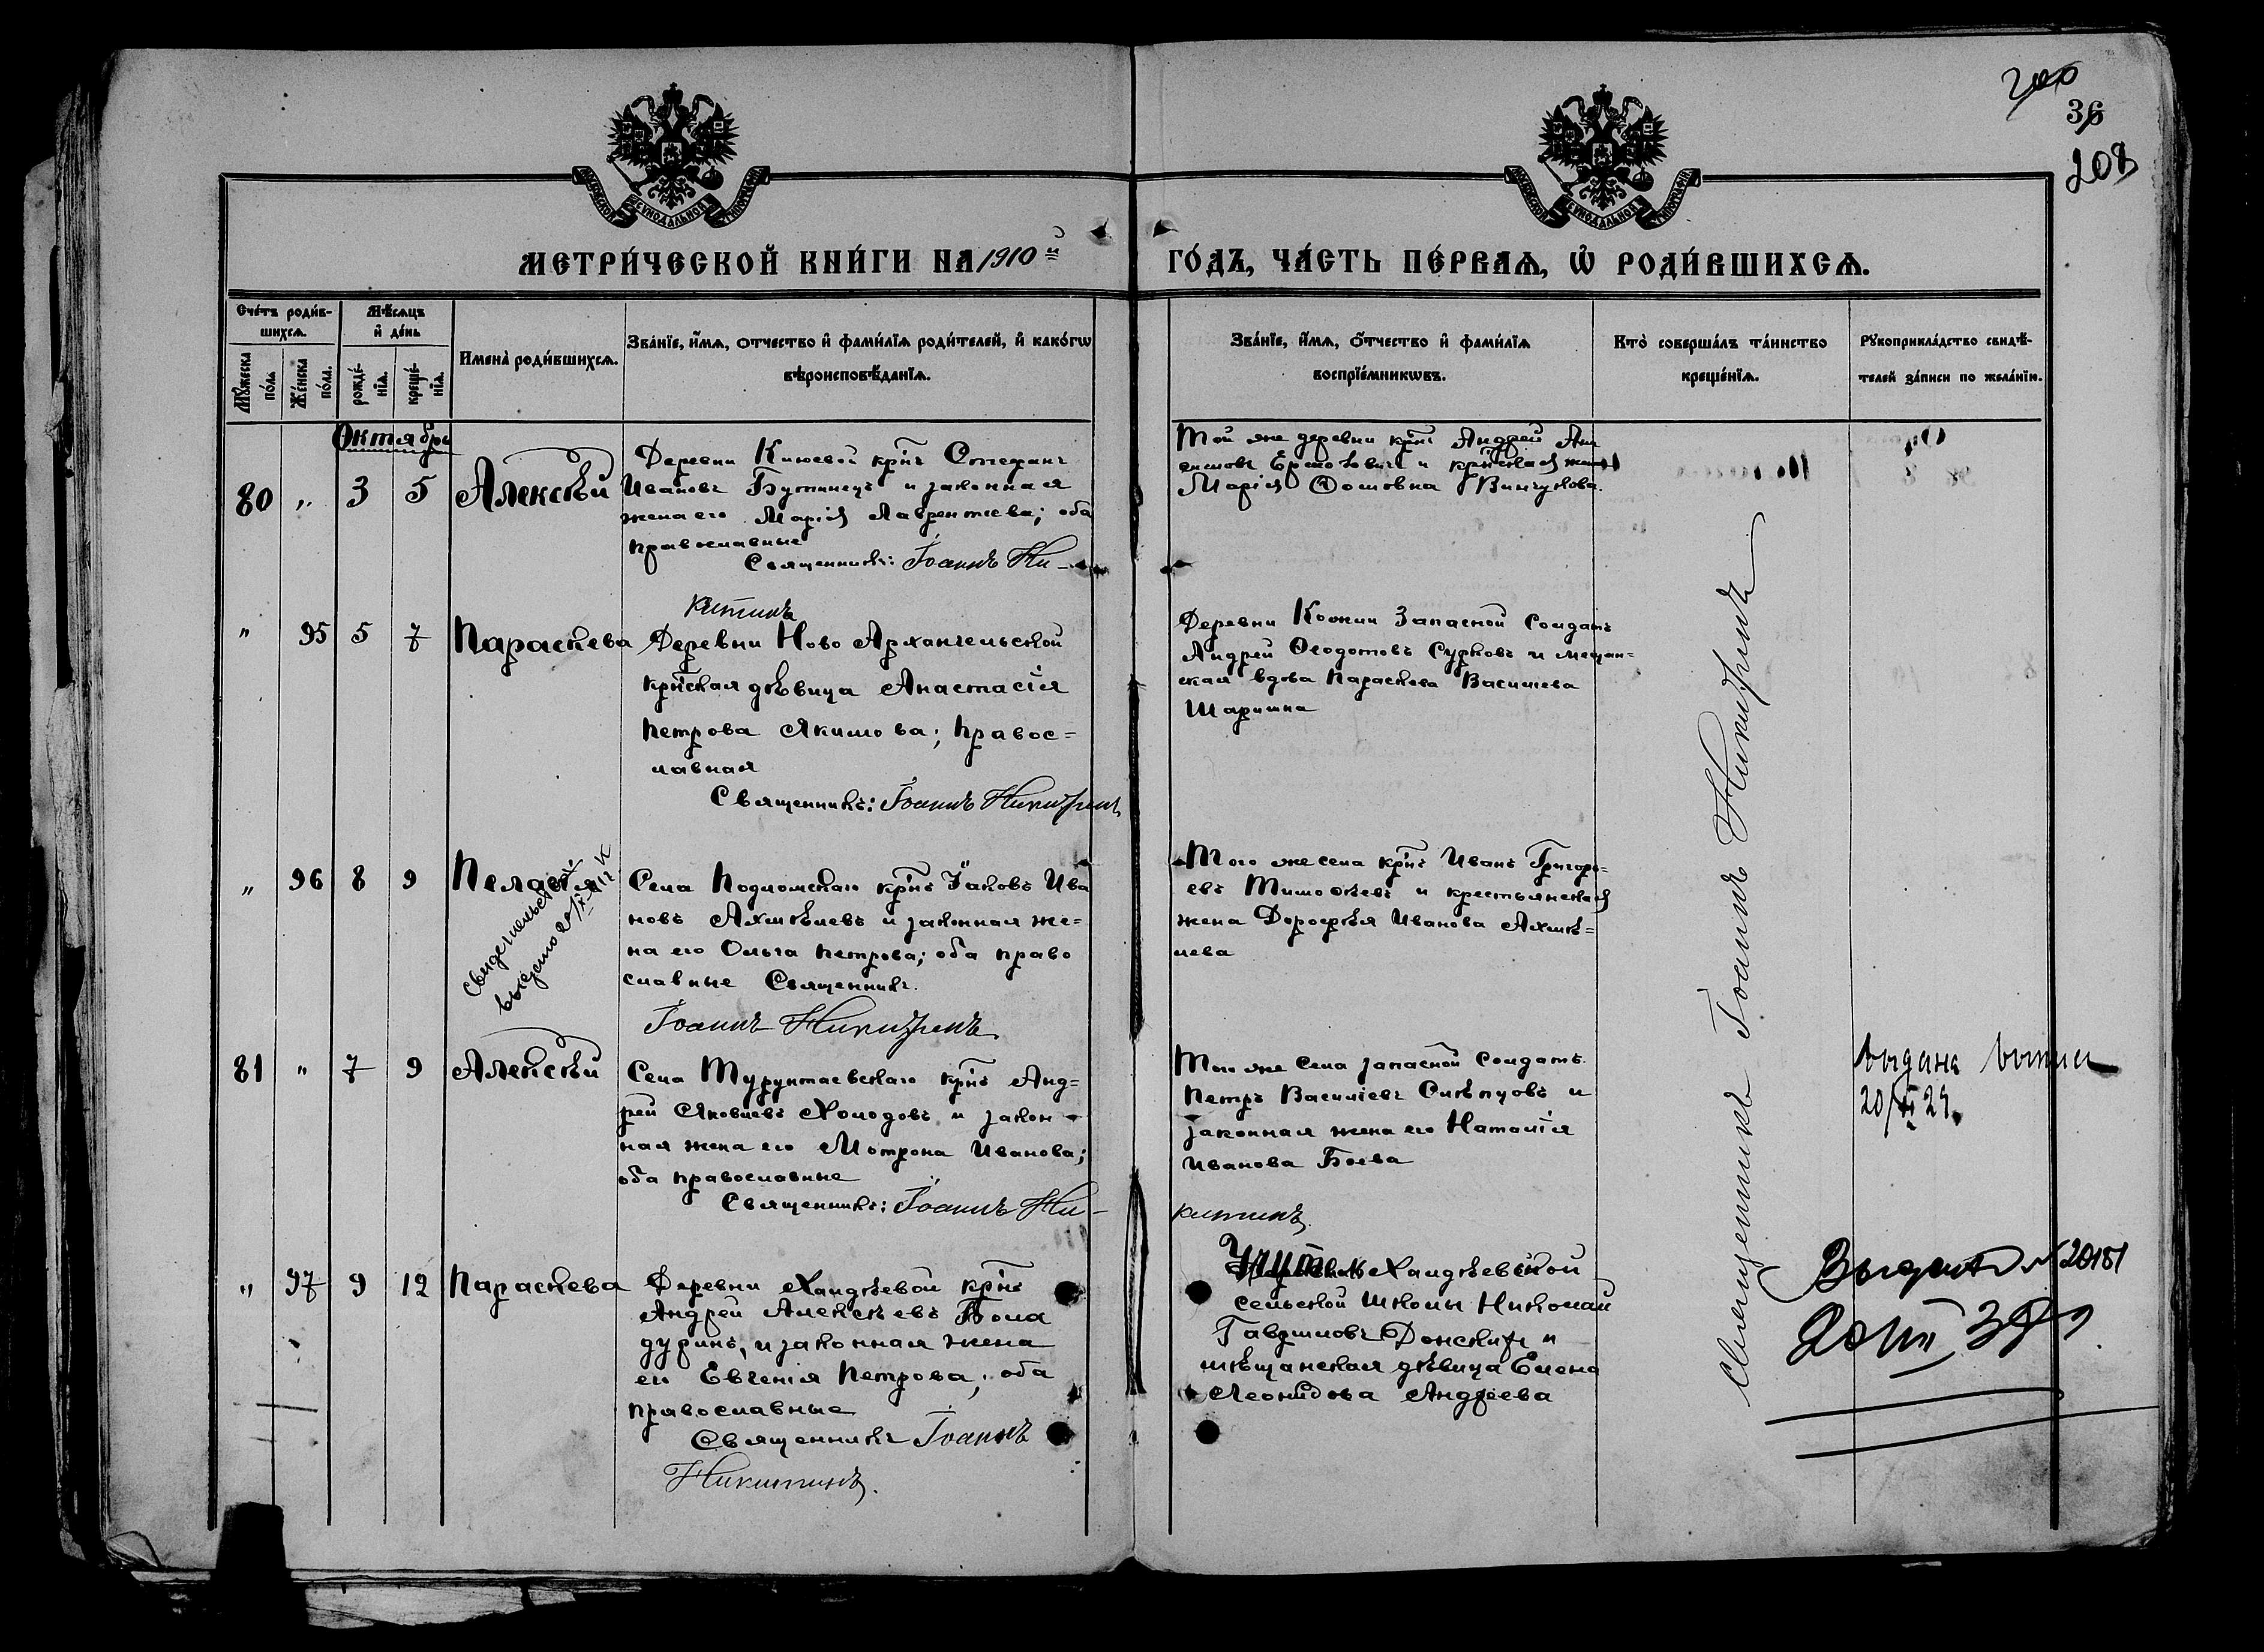 200
36
208
МОСКОВСКОЙ СѴНОДАЛЬНОЙ ТИПОГРАФІИ
МОСКОВСКОЙ СѴНОДАЛЬНОЙ ТИПОГРАФІИ
МЕТРИ́ЧЕСКОЙ КНИ́ГИ НА 1910й ГО́ДЪ, ЧА́СТЬ ПЕ́РВАѦ, Ѡ҆ РОДИ́ВШИХСѦ.
Сче́тъ роди́в-
шихсѧ.
Мꙋ́жеска по́ла
Же́нска по́ла.
Мѣ́сѧцъ
и҆ де́нь
рожде́-
нїѧ.
креще́-
нїѧ.
Имена̀ роди́вшихсѧ.
Зва́нїе, и҆́мѧ, о҆́тчество и҆ фами́лїѧ роди́телей, и҆ како́гѡ
вѣроисповѣ́данїѧ.
Зва́нїе, и҆́мѧ, о҆́тчество и҆ фами́лїѧ
воспрїе́мникѡвъ.
Кто̀ соверша́лъ та́инство
креще́нїѧ.
Рꙋкоприкла́дство свидѣ́-
телей за́писи по жела́нїю.
Октябрь
80 " 3 5 Алексѣй
Деревни Князевой крⷭ҇нъ Стефанъ
Ивановъ Бутинецъ и законная
жена его Марія Лаврентьева; оба
православные
Священникъ: Іоаннъ Ни-
китинъ
Той же деревни крⷭ҇нъ Андрей
Ермоловичъ и крⷭ҇нская жена
Марія Ѳомовна
" 95 5 7 Параскева
Деревни Ново Архангельской
крⷭ҇нская дѣвица Анастасія
Петрова Якимова; правос=
лавная
Священникъ: Іоаннъ Никитинъ
Деревни Кочкин Запасной Солдатъ
Андрей Ѳеодотовъ Сурковъ и мещан=
ская вдова Параскева Васильева
Шаришна
" 96 8 9 Пелагія
Свидетельство
выдано
Села Подломскаго крⷭ҇нъ Іаковъ Ива
новъ Ахмѣневъ и законная же=
на его Ольга Петрова; оба право
славные Священникъ.
Іоаннъ Никитинъ
Того же села крⷭ҇нъ Иванъ Григорь=
евъ Тимоѳеевъ и крестьянская
жена Дороѳея Иванова Ахмѣ=
нева
81 " 7 9 Алексѣй
Села Турунтаевскаго крⷭ҇нъ Анд=
рей Яковлевъ Холодовъ и закон
ная жена его Мотрона Иванова;
оба православные
Священникъ: Іоаннъ Ни-
китинъ.
Того же Села запасной Солдатъ
Петръ Василіевъ Слѣпцовъ и
законная жена его Наталія
Иванова Боева
выдана
" 97 9 12 Параскева
Деревни Халдѣевой крⷭ҇нъ
Андрей Алексѣевъ Бола
дуринъ, и законная жена
его Евгенія Петрова; оба
православные
Священникъ Іоаннъ
Никитинъ.
Халдѣевской
сельской школы Николай
Гавриловъ Донскихъ и
мѣщанская дѣвица Елена
Леонидова Андреева
Священникъ Іоаннъ Никитинъ
№ 20151